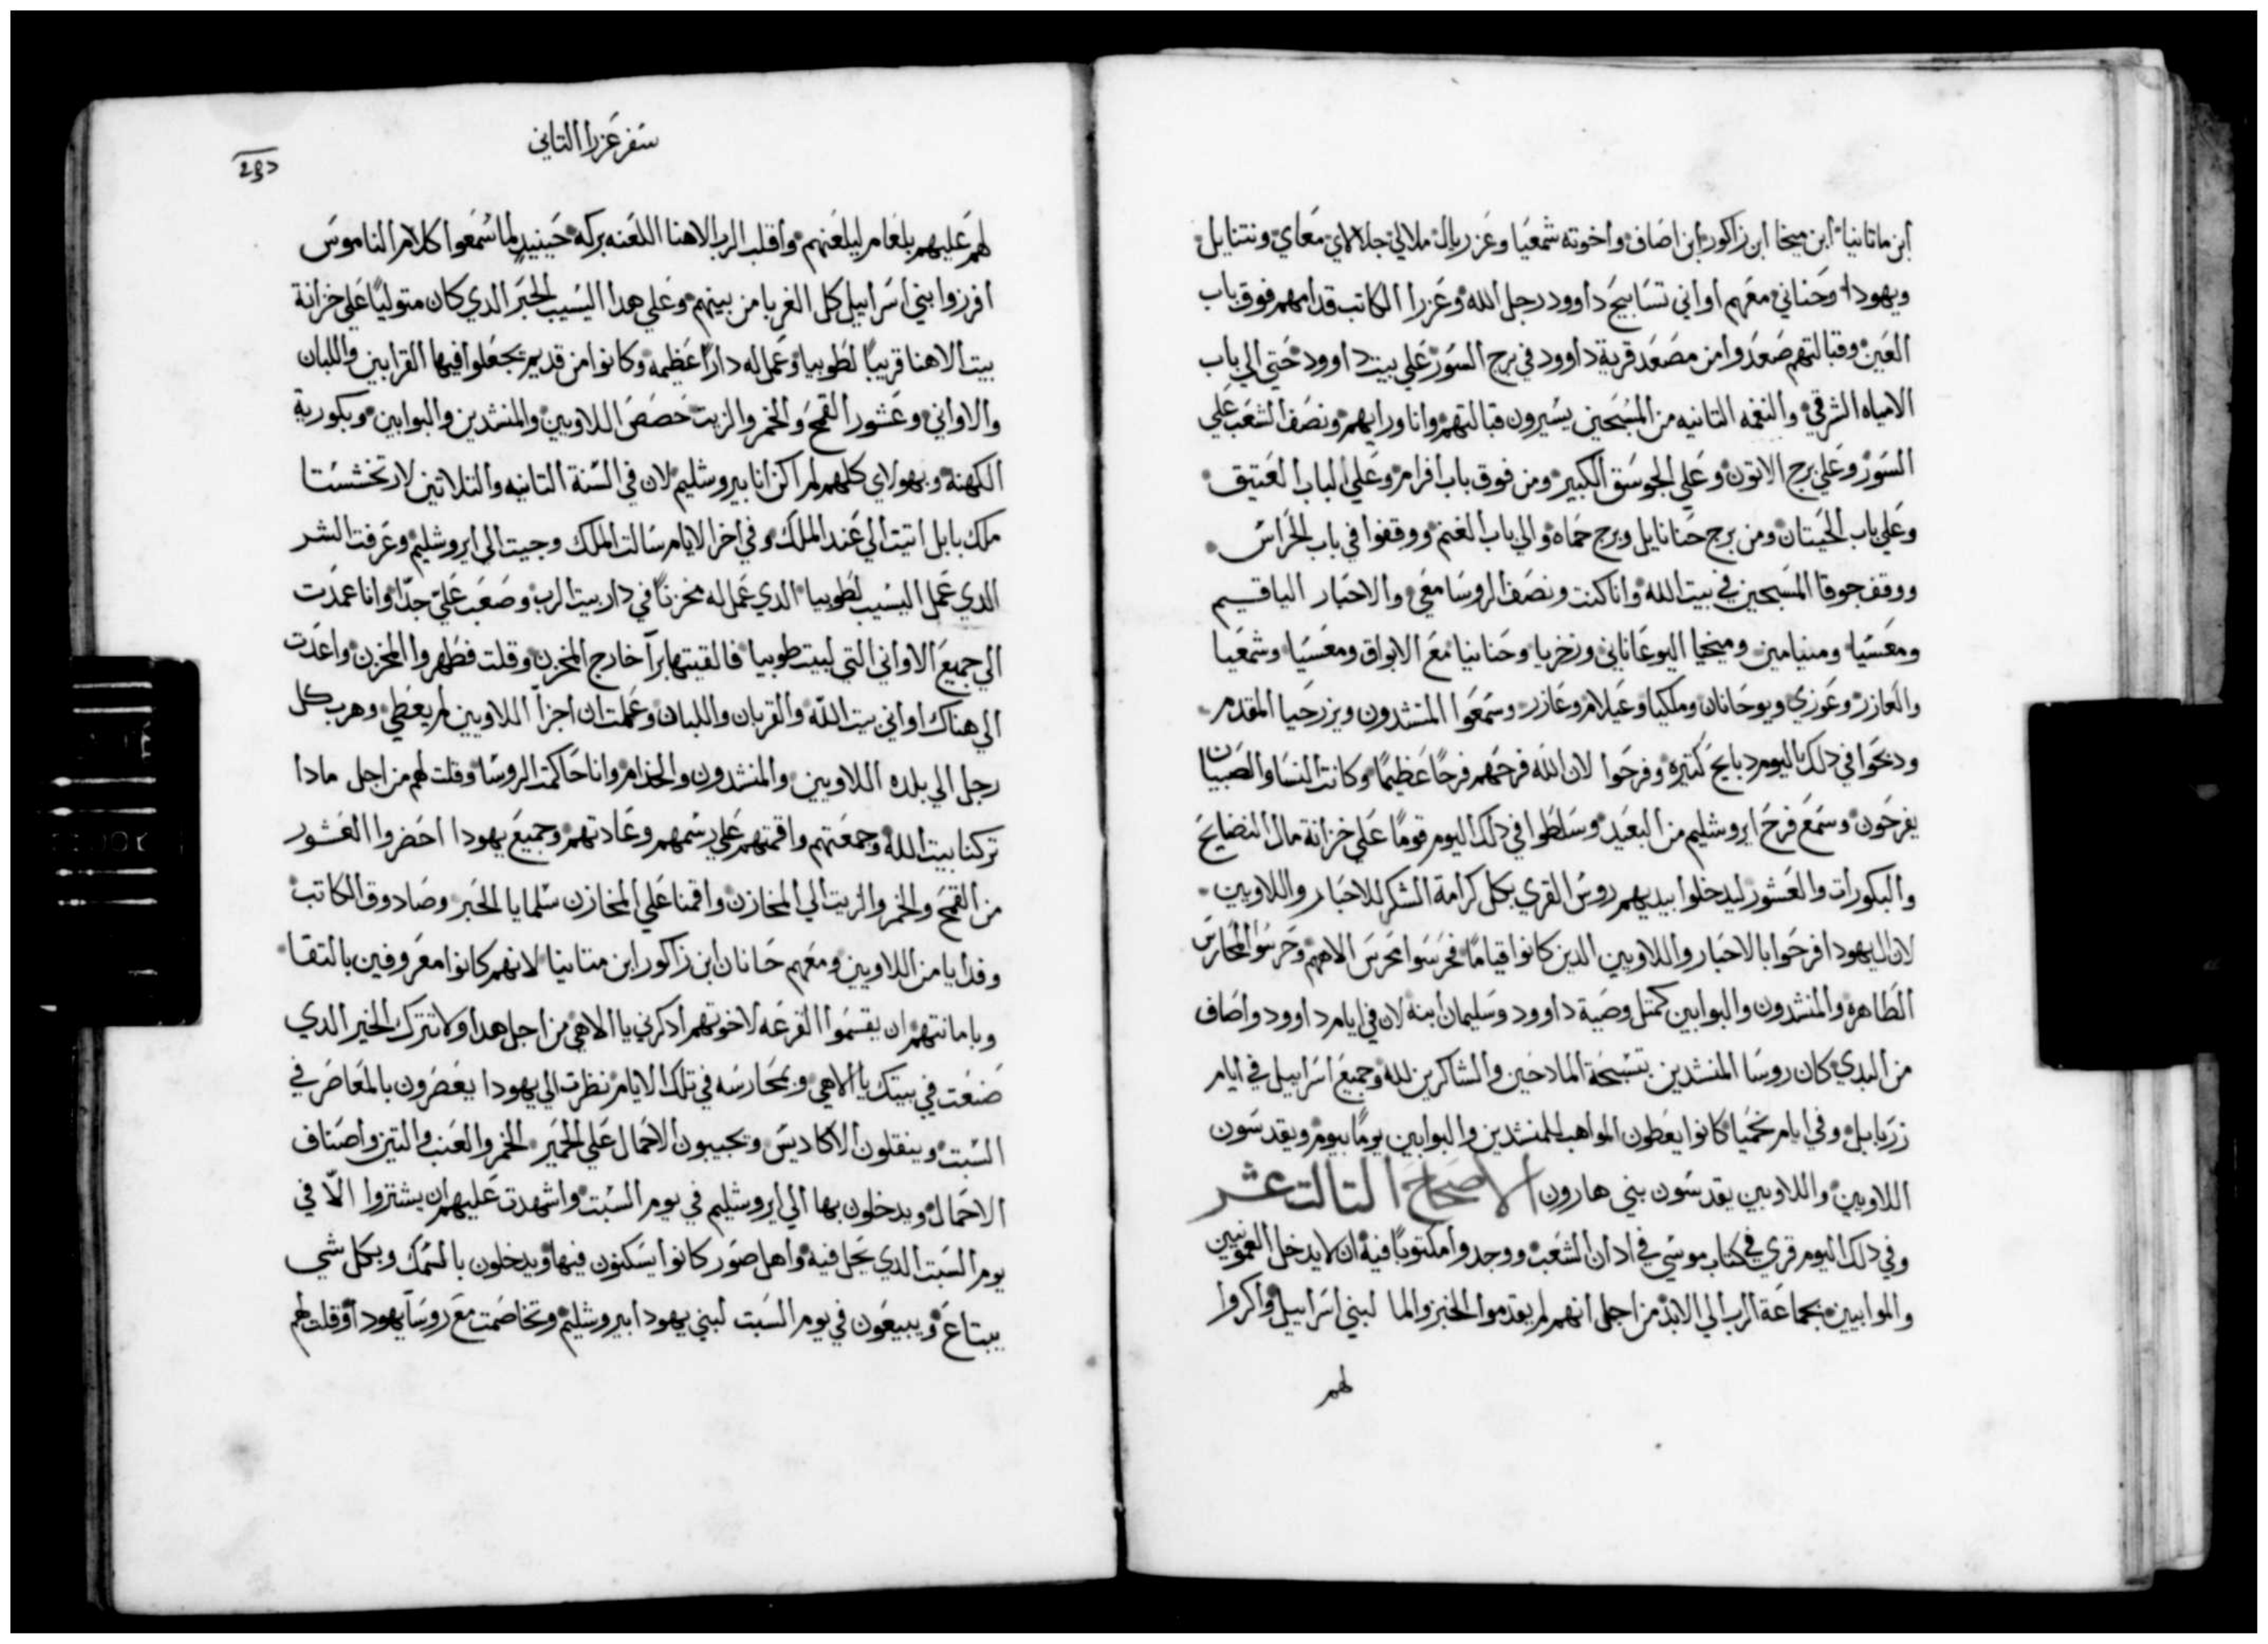 ابن ماتانيا ابن ميخا ابن زاكور ابن اصاف واخوته شمعيا وعزريال ملالي جلالاي معاي ونتنايل
ويهودا وحناني معهم اواني تسابيح داوود رجل الله وعزرا الكاتب قدامهم فوق باب
العين وقبالتهم صعدوا من مصعد قرية داوود في برج السور علي بيت داوود حتي الي باب
الامياه الشرقي والنغمه التانيه من المسبحين يسيرون قبالتهم وانا ورايهم ونصف الشعب علي
السور وعلي برج الاتون وعلي الجوسق الكبير ومن فوق باب افرام وعلي الباب العتيق
وعلي باب الحيتان ومن برج حنانايل وبرج حماه والي باب الغنم ووقفوا في باب الحراس
ووقف جوقا المسبحين في بيت الله وانا كنت ونصف الروسا معي والاحبار الياقيم
ومعسيا ومنيامين وميخيا اليوعاناني وزخريا وحنانيا مع الابواق ومعسيا وشمعيا
والعازر وعوزي ويوحانان وملكيا وعيلام وعازر وسمعوا المنشدون ويزرحيا المقدم
ودبحوا في دلك اليوم دبايح كتيره وفرحوا لان الله فرحهم فرحًا عظيمًا وكانت النسا والصبيان
يفرحون وسمع فرح ايروشليم من البعيد وسلطوا في دلك اليوم قومًا علي خزانة مال النضايح
والبكورات والعشور ليدخلوا بيديهم روس القري بكل كرامة الشكر للاحبار واللاويين
لان اليهودا فرحوا بالاحبار واللاويين الدين كانوا قيامًا فحرسوا محرس الاههم وحرسوا المحارس
الطاهره والمنشدون والبوابين كمتل وصية داوود وسليمان ابنه لان في ايام داوود واصاف
من البدي كان روسا المنشدين بتسبحة المادحين والشاكرين لله وجميع اسراييل في ايام
زربابل وفي ايام نحميا كانوا يعطون المواهب للمنشدين والبوابين يومًا بيوم ويقدسون
اللاويين واللاويين يقدسون بني هارون الاصحاح التالت عشر
وفي دلك اليوم قري في كتاب موسي في ادان الشعب ووجدوا مكتوبًا فيه ان لا يدخل العمونيين
والموابيين بجماعة الرب الي الابد من اجل انهم لم يقدموا الخبز والما لبني اسراييل واكروا
لهم
سفر عزرا التاني
لهم عليهم بلعام ليلعنهم واقلب الرب الاهنا اللعنه بركه حينيدٍ لما سمعوا كلام الناموس
افرزوا بني اسراييل كل الغربا من بينهم وعلي هدا اليسيب الحبر الدي كان متوليًا علي خزانة
بيت الاهنا قريبًا لطوبيا وعمل له دارًا عظيمه وكانوا من قديم يجعلوا فيها القرابين واللبان
والاواني وعشور القمح والخمر والزيت حصص اللاويين والمنشدين والبوابين وبكورية
الكهنة وبهولاي كلهم لم اكن انا بيروشليم لان في السنة التانيه والتلاتين لارتخششتا
ملك بابل اتيت الي عند الملك وفي اخر الايام سالت الملك وجيت الي ايروشليم وعرفت الشر
الدي عمل اليسيب لطوبيا الدي عمل له مخزنًا في دار بيت الرب وصعب علي جدًا وانا عمدت
الي جميع الاواني التي لبيت طوبيا فالقيتها برًا خارج المخزن وقلت فطهروا المخزن واعدت
الي هناك اواني بيت الله والقربان واللبان وعملت ان اجزا اللاويين لم يعطي وهرب كل
رجل الي بلده اللاويين والمنشدون والخدام وانا حاكمت الروسا وقلت لهم من اجل مادا
تركنا بيت الله وجمعتهم واقمتهم علي رسمهم وعادتهم وجميع يهودا احضروا العشور
من القمح والخمر والزيت الي المخازن واقمنا علي المخازن سلمايا الحبر وصادوق الكاتب
وفدايا من اللاويين ومعهم حانان ابن زاكور ابن متانيا لانهم كانوا معروفين بالتقا
وبامانتهم ان يقسموا القرعه لاخوتهم ادكرني يا الاهي من اجل هدا ولا تترك الخير الدي
صنعت في بيتك يا الاهي وبمحارسه في تلك الايام نظرت الي يهودا يعصرون بالمعاصر في
السبت وينقلون الاكاديس ويجيبون الاحمال علي الحمير الخمر والعنب والتين واصناف
الاحمال ويدخلون بها الي ايروشليم في يوم السبت واشهدت عليهم ان يشتروا الّا في
يوم السبت الدي يحل فيه واهل صور كانوا يسكنون فيها ويدخلون بالسمك وبكل شي
يبتاع ويبيعون في يوم السبت لبني يهودا بيروشليم وتخاصمت مع روسا يهودا وقلت لهم